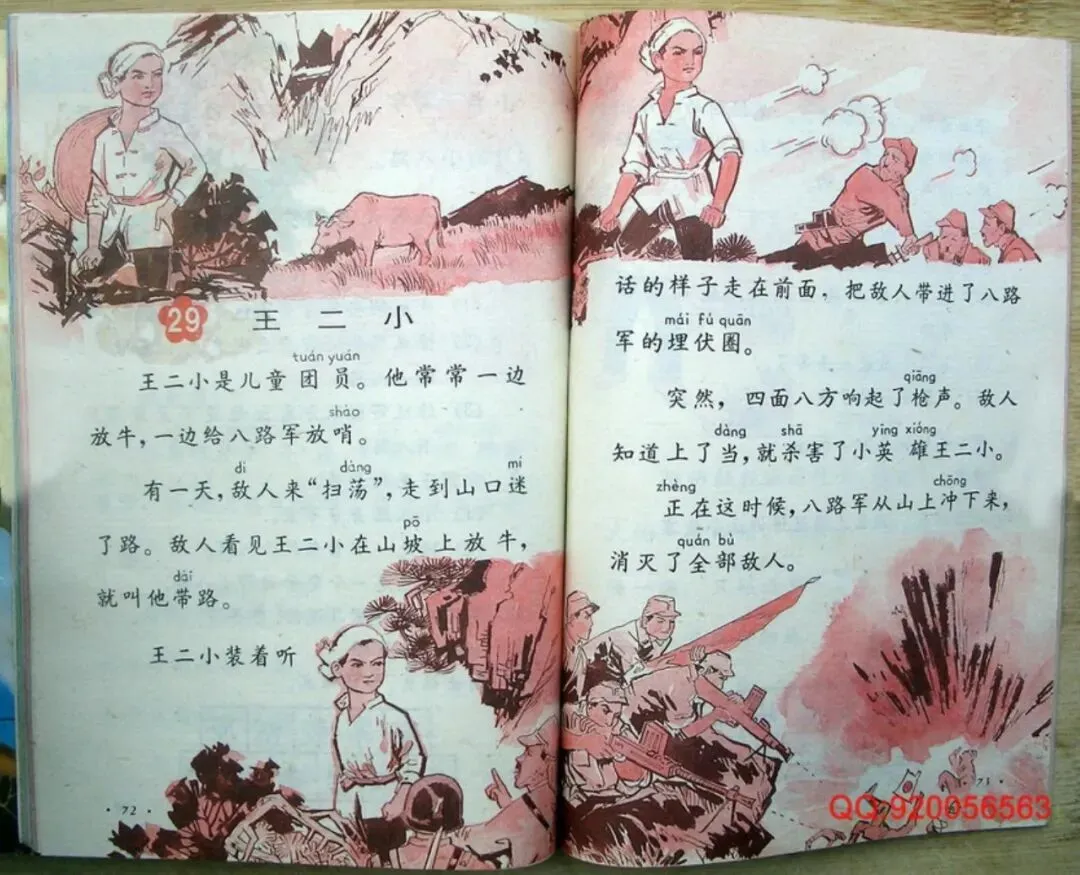 29 王二小
tuán yuán
王二小是儿童团员。他常常一边
shào
放牛，一边给八路军放哨。
dí dàng mí
有一天，敌人来“扫荡”，走到山口迷
pō
了路。敌人看见王二小在山坡上放牛，
dài
就叫他带路。
王二小装着听
·72·
话的样子走在前面，把敌人带进了八路
mái fú quān
军的埋伏圈。
qiāng
突然，四面八方响起了枪声。敌人
dàng shā yīng xióng
知道上了当，就杀害了小英雄王二小。
zhèng chōng
正在这时候，八路军从山上冲下来，
quán bù
消灭了全部敌人。
·73
QQ:920056563